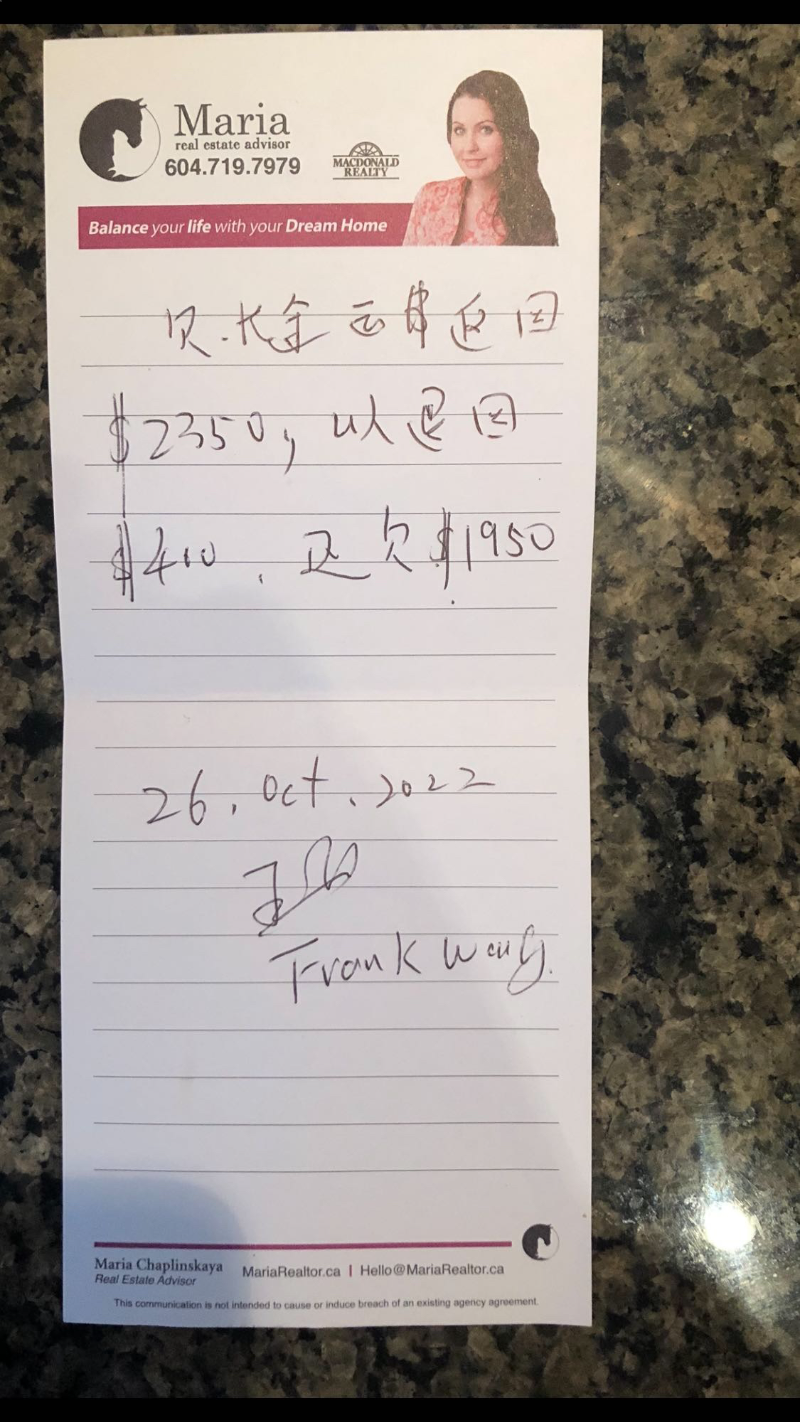 Maria
real estate advisor
604.719.7979
MACDONALD
REALTY
Balance your life with your Dream Home
返回
$2350, 以退回
$400. 还欠$1950
26. Oct. 2022
Frank Wang.
Maria Chaplinskaya
Real Estate Advisor
MariaRealtor.ca | Hello@MariaRealtor.ca
This communication is not intended to cause or induce breach of an existing agency agreement.